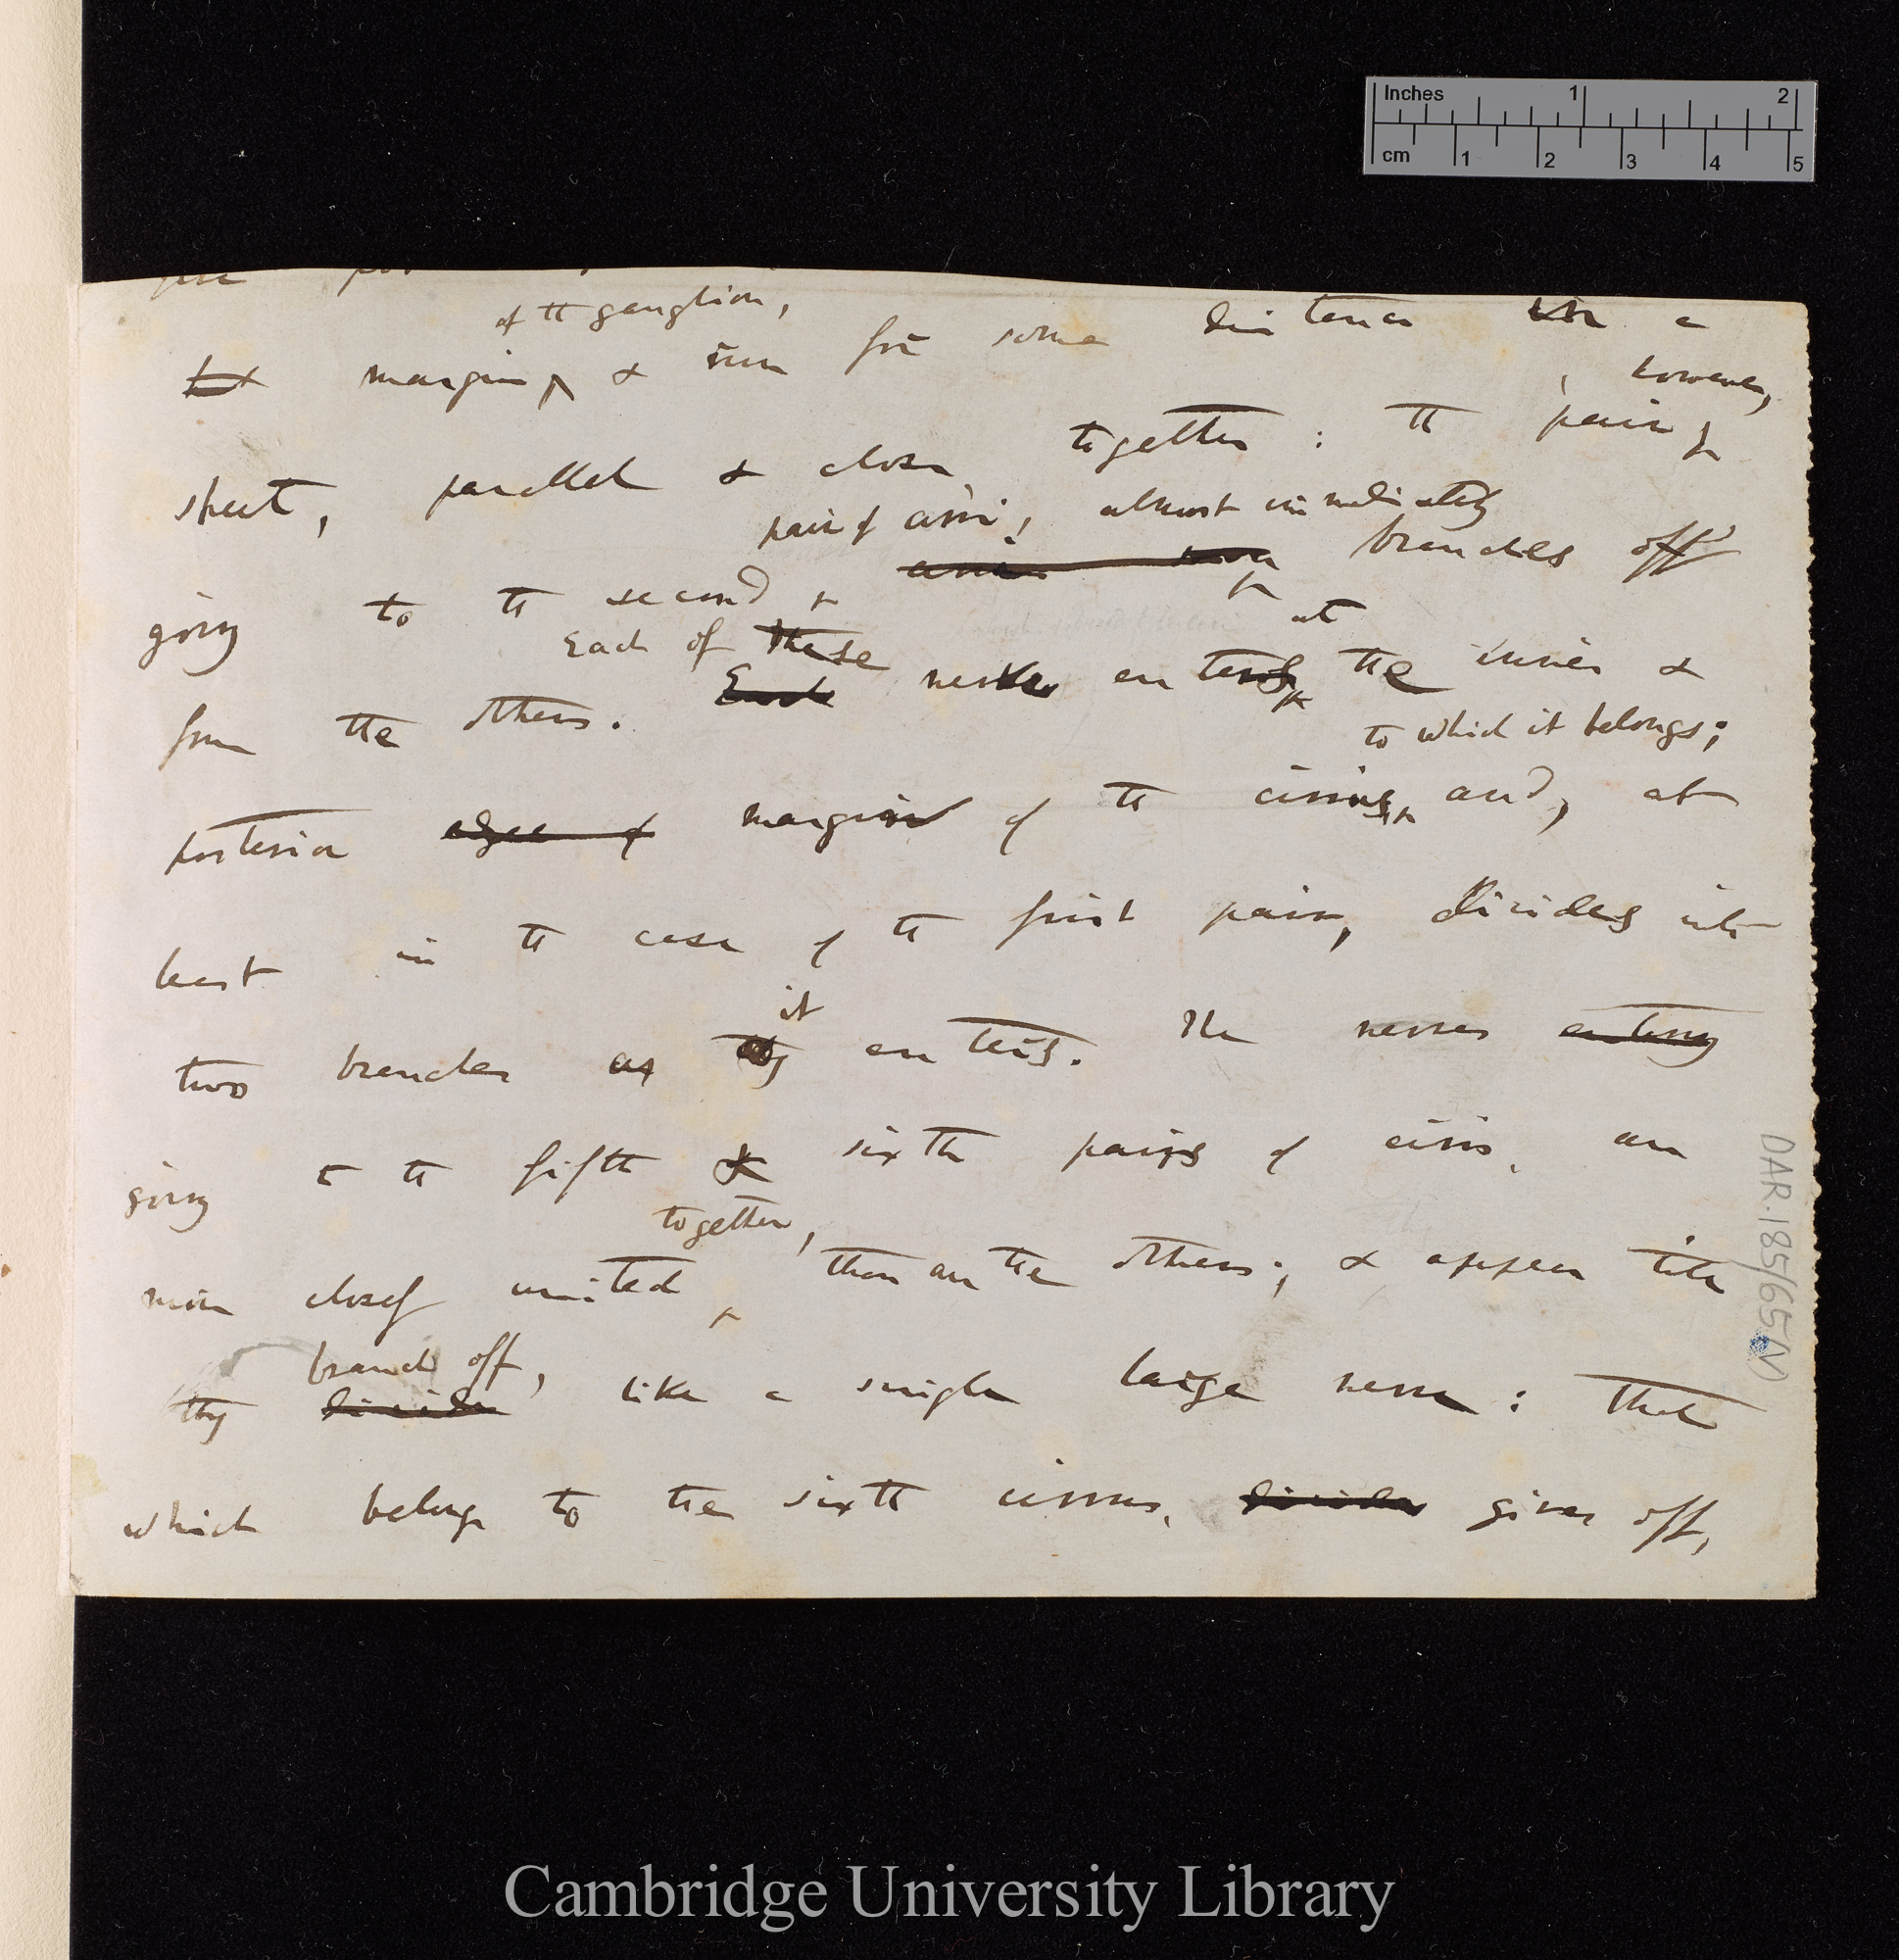 Inches 1 2
cm 1 2 3 4 5
of the ganglion,
margin & run for some distance in a
, however,
sheet, parallel & close together : the pair
pair of cirri, almost immediately
going to the second cirri soon branches off
Each of these at
from the others. Each nerve enters the inner &
to which it belongs;
posterior edge of margin of the cirrus, and, at
least in the case of the first pair, divides into
it
two branches as they enters. The nerves entering
going to the fifth & sixth pairs of cirri, are
together,
more closely united than are the others; & appear till
branch off,
they divide like a single large nerve : that
which belongs to the sixth cirrus, divides gives off,
DAR.185/65(V)
Cambridge University Library